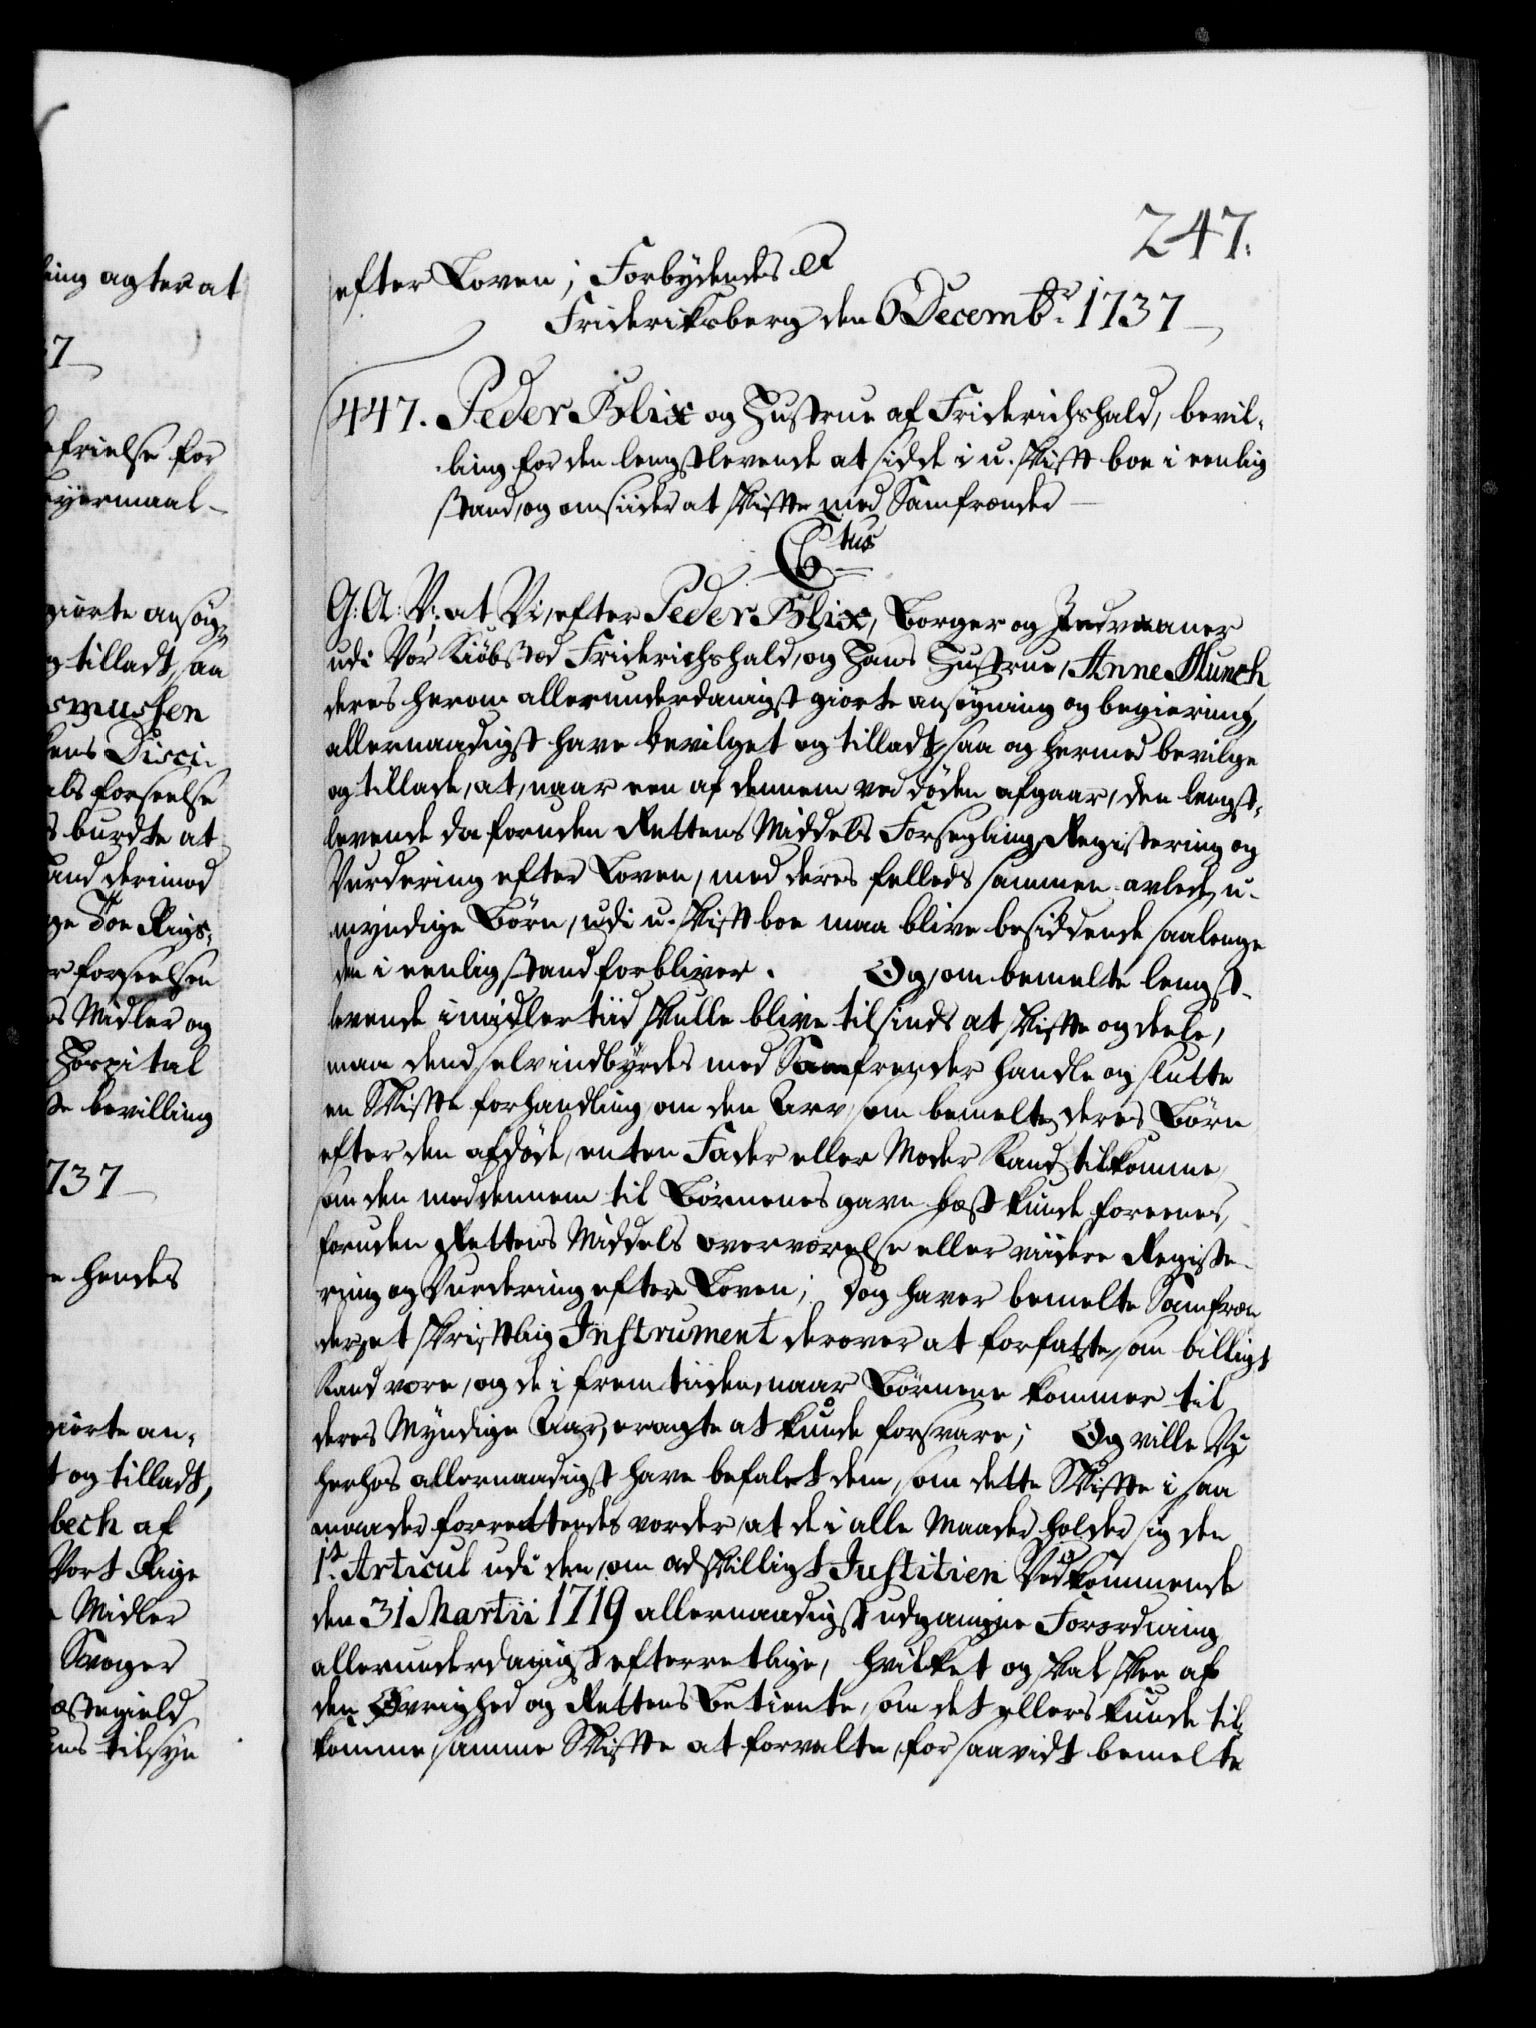 247.
efter Loven; Forbydendes et
Frideriksberg den 6 Decembr. 1737
447. Peder Blix og Hustrue af Friderichshald, bevil-
ling for den lengstlevende at sidde i u-skift boe i eenlig
stand, og omsiider at skifte med Samfrænder
Ctus
G: A: V: at Vi, efter Peder Blix, Borger og Indvaaner
udi Vor Kiøbsted Friderichshald, og Hans Hustrue, Anne Munch
deres herom allerunderdanigst giorte ansøgning og begiering,
allernaadigst have bevilget og tilladt, saa og hermed bevilge
og tillade, at, naar een af dennem ved døden afgaar, den lengst-
levende da foruden Rettens Middels Forsegling, Registering og
Vurdering efter Loven, med deres felleds sammen avlede, u-
myndige Børn, udi u-skift boe maa blive besiddende saalenge
den i eenlig stand forbliver. Og, om bemelte lengst-
levende imidlertiid skulle blive tilsinds at skifte og deele,
maa dend selvindbyrdes med Samfrender handle og slutte
en Skifte forhandling om den Arv, som bemelte deres Børn
efter den afdøde, enten Fader eller Moder kand tilkomme,
som den med dennem til Børnenes gavn best kunde foreenes,
foruden Rettens Middels overværelse eller viidere Registe-
ring og Vurdering efter Loven; dog haver bemelte Samfræn
der et skriftlig Instrument derover at forfatte, som billigt
kand være, og de i fremtiiden, naar Børnene kommer til
deres Myndige Aar, eragte at kunde forsvare; Og ville Vi
herhos allernaadigst have befalet dem, som dette Skifte i saa
maader forrettendes vorder, at de i alle Maader holder sig den
1st. Articul udi den, om adskilligt Justitien Vedkommende
den 31 Martii 1719 allernaadigst udgangne Forordning
allerunderdanigst efterretlige, hvilket og skal skee af
den Øvrighed og Rettens Betiente, som det ellers kunde til-
komme, samme Skifte at forvalte, for saavidt bemelte